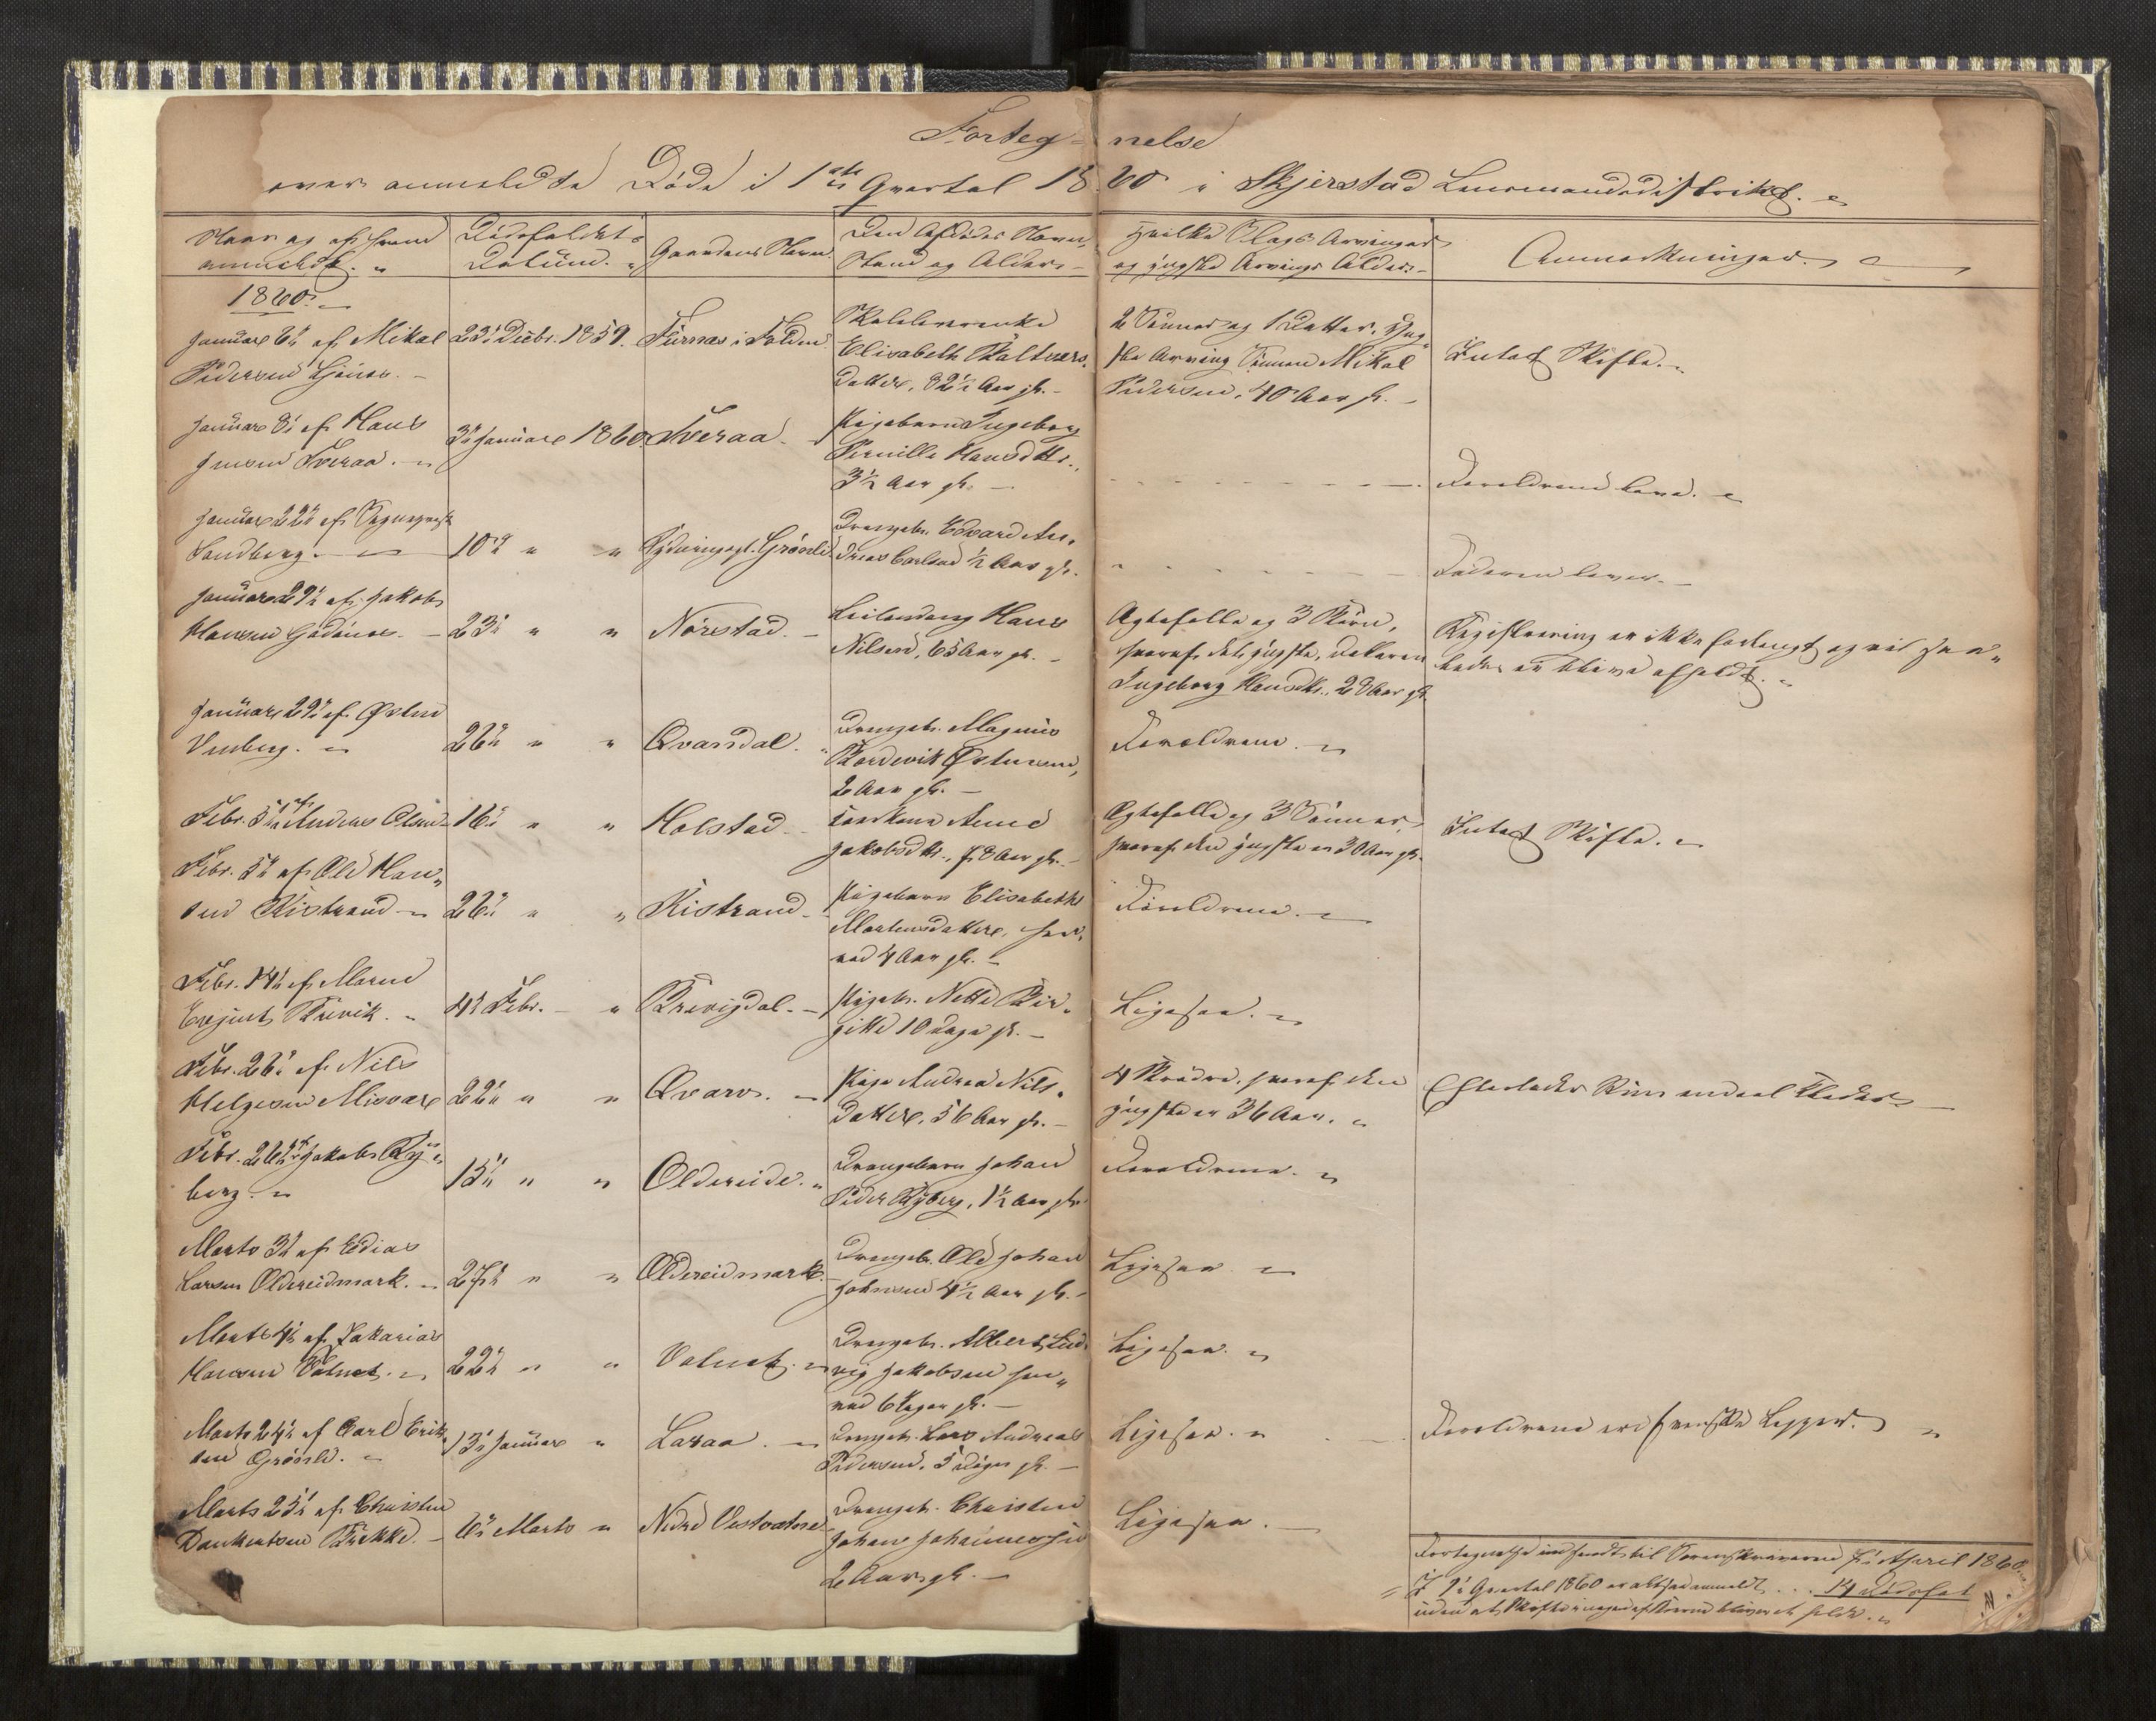 Forteg- nelse
over anmeldte Døde i 1ste Qvartal 1860 i Skjerstad Lensmandsdistrikt.
Naar og af hvem
anmeldt.
Dødsfaldets
Datum.
Gaardens Navn.
Den Afdødes Navn,
Stand og Alder.
Hvilke Slags Arvinger
og yngste Arvings Alder.
Anmærkninger.
1860.
Januar 6te af Mikal
Pedersen
23de Decbr. 1859.
Furnæs i Folden
Elisabeth Baltzers-
datter, 82½ Aar gl.
2 Sønner og 1 Datter. Yng-
ste Arving Sønnen Mikal
Pedersen, 40 Aar gl.
Intet Skifte.
Januar 8de af Hans
Jensen Tveraa.
3de Januar 1860
Tveraa
Pigebarn Ingeborg
Pernille Hansdtr.,
3½ Aar gl.
Forældrene leve.
Januar 22de af Sogneprest
Sandberg.
10de " "
Grønlid
Drengeb. Edvard An-
dreas Carlsen ½ Aar gl.
Faderen lever.
Januar 29de af Jakob
Hansen Godønes.
23de " "
Nørstad.
Leilending Hans
Nilsen, 65 Aar gl.
Ægtefelle og 3 Børn,
hvoraf det yngste, Datteren
Ingeborg Hansdtr., 28 Aar gl.
Registrering er ikke forlangt og vil saa-
ledes ei blive afholdt.
Januar 29de af Østen
Venberg.
26de " "
Qvandal.
Drengeb. Magnus
Bordevik Østensen,
2 Aar gl.
Forældrene.
Febr. 5te af Anders Olsen
16de " "
Holstad
Enkekone Anne
Jakobsdtr., 78 Aar gl.
Ægtefelle og 3 Sønner,
hvoraf den yngste er 30 Aar gl.
Intet Skifte.
Febr. 5te af Ole Han-
sen Kistrand
26de " "
Kistrand
Pigebarn Elisabeth
Martensdatter, hen-
ved 4 Aar gl.
Forældrene.
Febr. 14de af Maren
4de Febr. "
Brevigdal.
Pigeb. Nette Bir-
gitte 10 Dage gl.
Ligesaa.
Febr. 26de af Nils
Helgesen Misvær
22de " "
Qvarv.
Pige Andrea Nils-
datter, 56 Aar gl.
4 Brødre, hvoraf den
yngste er 36 Aar.
Efterlader kun endeel Klæder
Febr. 26de af Jakob Ry-
berg.
15de " "
Oldereide.
Drengebarn Johan
Peder Ryberg, 1½ Aar gl.
Forældrene.
Marts 3de af Edias
Larsen Oldereidmark.
27de " "
Oldereidmark
Drengeb. Ole Johan
Johnsen 4½ Aar gl.
Ligesaa
Marts 4de af Zakarias
Hansen Valnes.
22de " "
Valnes.
Drengeb. Albert Lud-
vig Jakobsen hen-
ved 6 Uger gl.
Ligesaa.
Marts 24de af Carl Erik-
sen Grønli.
13de Januar "
Laxaa.
Drengeb. Lars Andreas
Pedersen, 5 Uger gl.
Ligesaa.
Forældrene ere svenske Lapper.
Marts 25de af Christen
Dankertsen Brekke.
6te Marts "
Nedre Vestvatne
Drengeb. Christen
Johan Johannessen
2 Aar gl.
Ligesaa.
Fortegnelse indsendt til Sorenskriveren 7de April 1860.
I 1ste Qvartal 1860 er altsaa anmeldt ... 14 Dødsfal
uden at Skifte i noget af Boerne bliver at holde.